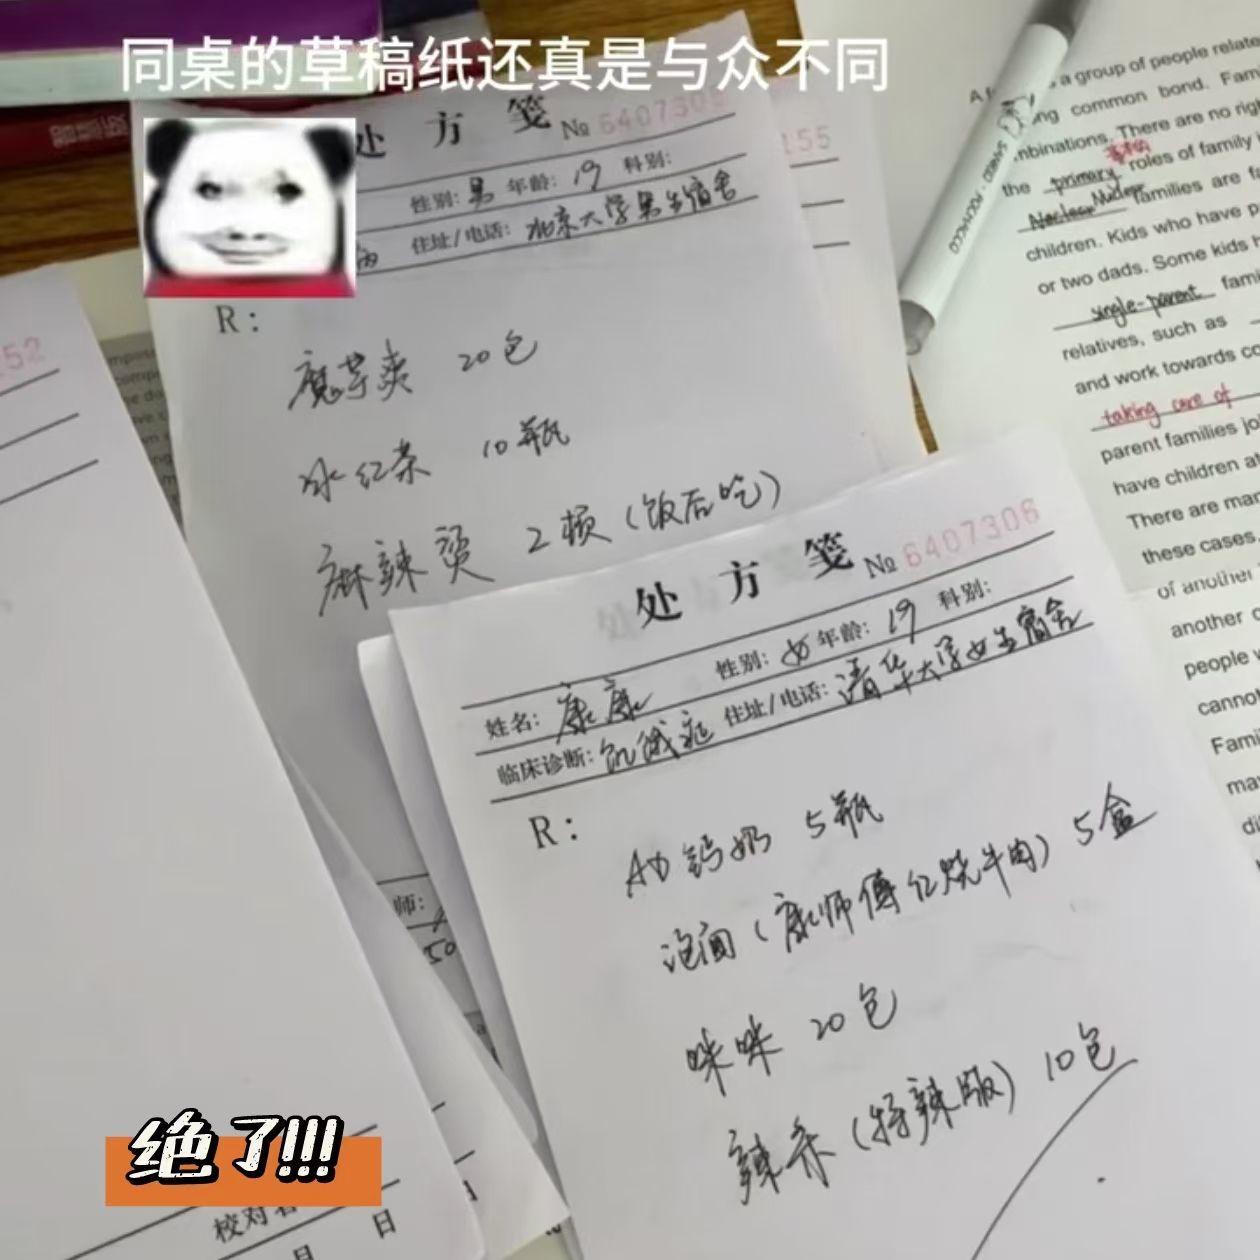 同桌的草稿纸还真是与众不同
处 方 笺 № 640730
155
性别: 男 年龄: 19 科别:
住址/电话: 北京大学男生宿舍
R:
魔芋爽 20包
冰红茶 10瓶
麻辣烫 2顿(饭后吃)
52
处 方 笺 № 6407306
性别: 女 年龄: 19 科别:
姓名: 康康
临床诊断: 饥饿症 住址/电话: 清华大学女生宿舍
R:
AD钙奶 5瓶
泡面(康师傅红烧牛肉) 5盒
咪咪 20包
辣条(特辣版) 10包
师:
50
绝了!!!
校对
月 日
a group of people relate
common bond. Fami
There are no righ
基本的
the primary roles of family
Nuclear families are fa
children. Kids who have p
or two dads. Some kids h
single-parent fami
relatives, such as
and work towards co
taking care of
parent families jo
have children at
There are mar
these cases,
of another
another c
people w
cannot
Fami
ma
di